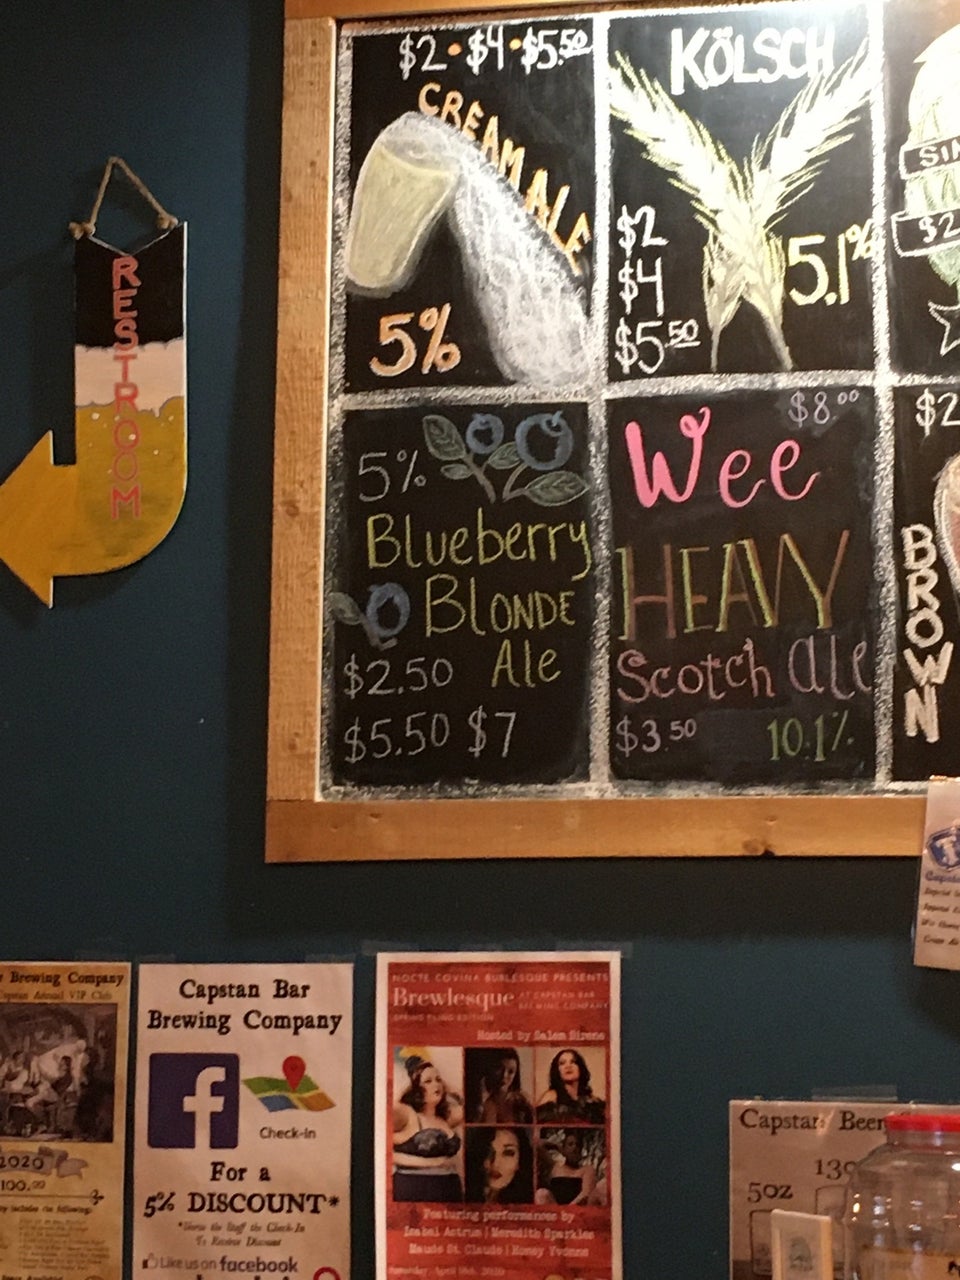 $2 • $4 • $5.50
CREAM ALE
5%
KÖLSCH
$2
$4
$5.50
5.1%
SIN
$2
RESTROOM
5%
Blueberry
BLONDE
Ale
$2.50
$5.50 $7
$8.00
Wee
HEAVY
Scotch Ale
$3.50 10.1%
$2
BROWN
Brewing Company
Capstan Annual VIP Club
2020
100.00
Capstan Bar
Brewing Company
f
Check-In
For a
5% DISCOUNT*
*Show the Staff the Check-In
To Receive Discount
Like us on facebook
NOCTE COVINA BURLESQUE PRESENTS
Brewlesque AT CAPSTAN BAR
BREWING COMPANY
SPRING FLING EDITION
Hosted by Salem Sirene
Featuring performances by
Isabel Astrum | Meredith Sparkles
Maude St. Claude | Honey Yvonne
Capstan Beer
5oz
13o